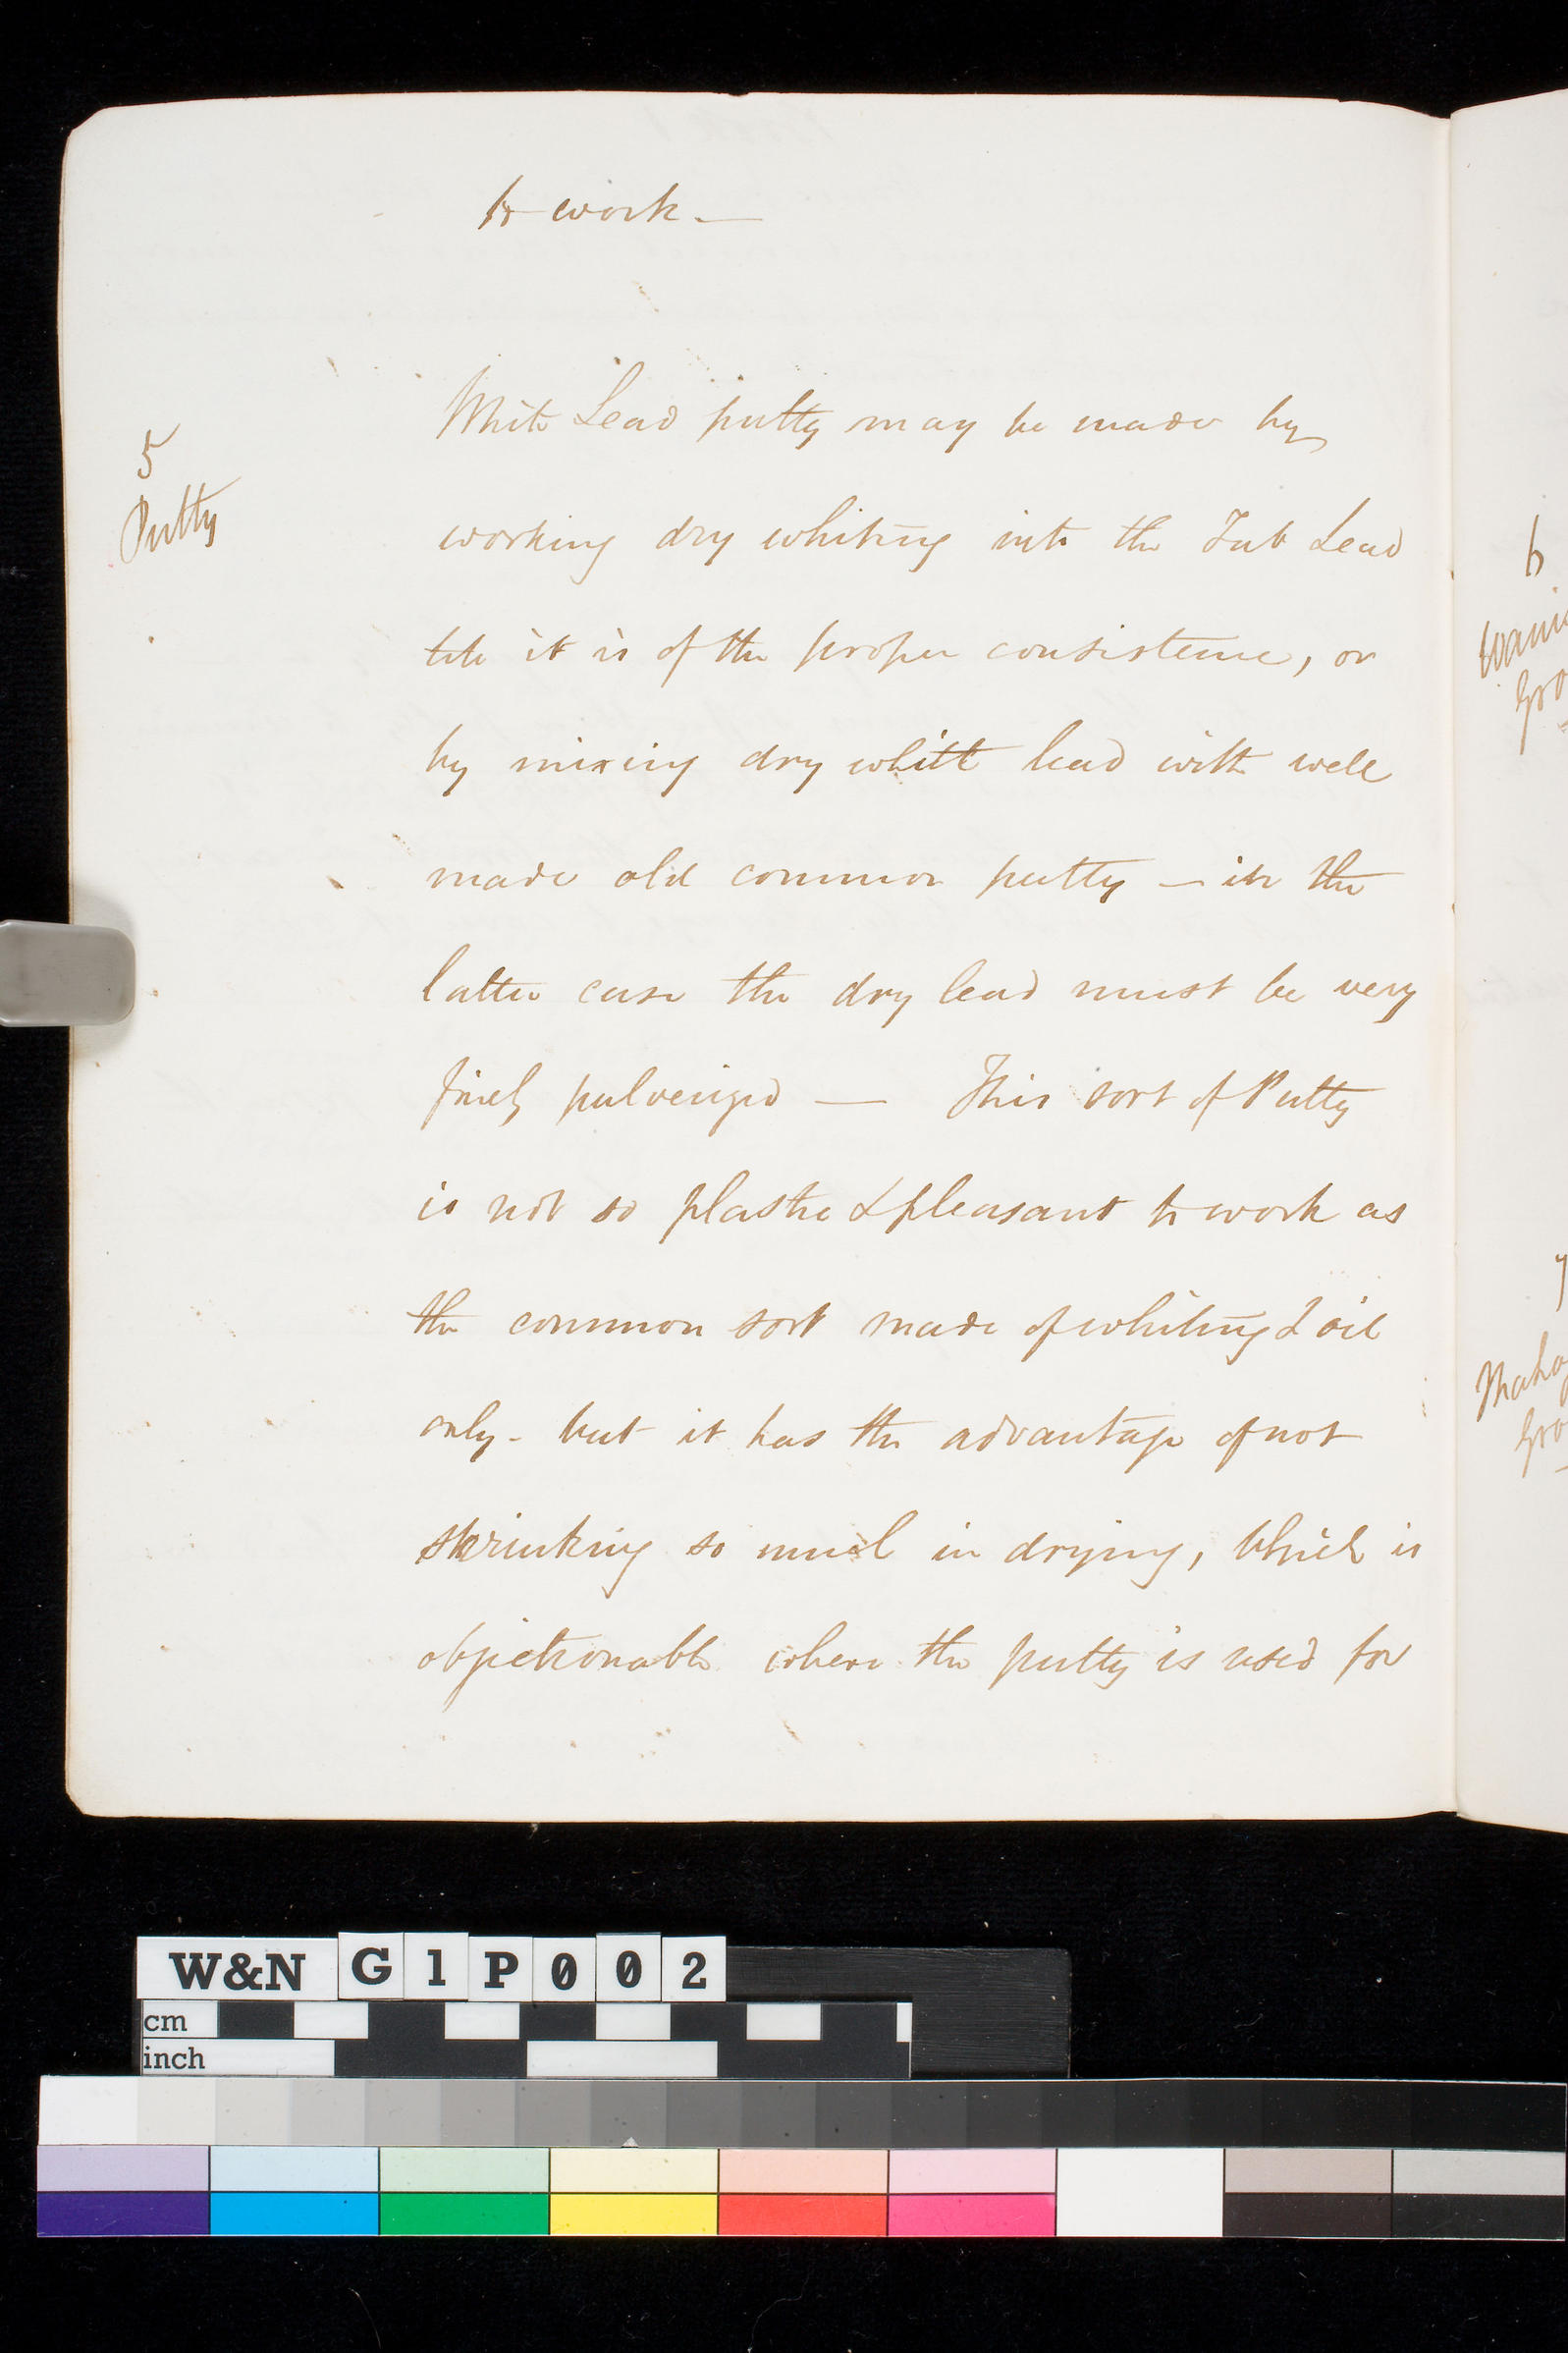 to work —
5
Putty
White Lead putty may be made by
working dry whiting into the Tub Lead
till it is of the proper consistence, or
by mixing dry white lead with well
made old common putty — in the
latter case the dry lead must be very
finely pulverized — This sort of Putty
is not so plastic & pleasant to work as
the common sort made of whiting & oil
only - but it has the advantage of not
shrinking so much in drying, which is
objectionable where the putty is used for
6
Gro
7
Maho
Gro
W&N G1P002
cm
inch